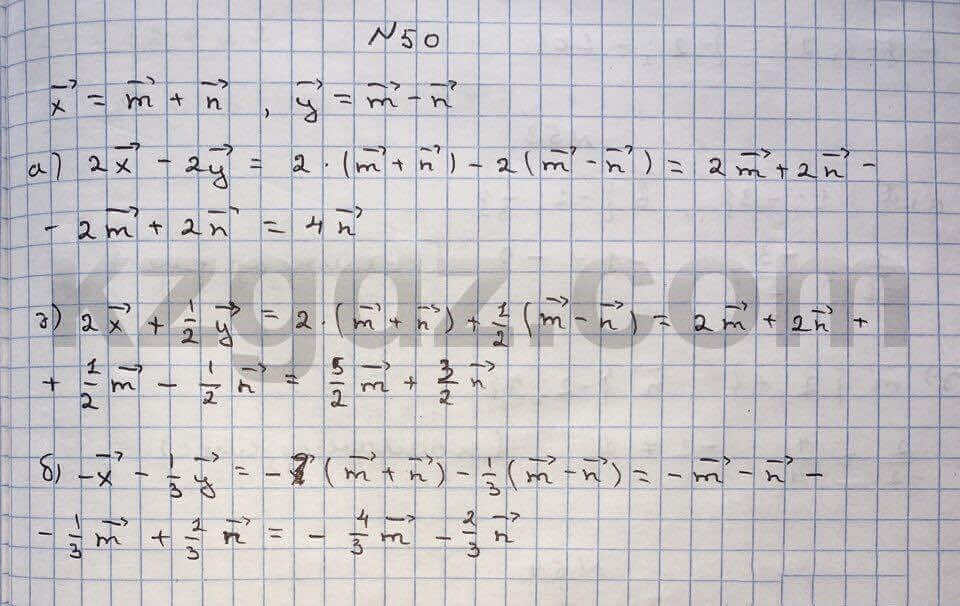 №50
x⃗ = m⃗ + n⃗ , y⃗ = m⃗ − n⃗
а) 2x⃗ − 2y⃗ = 2 · (m⃗ + n⃗) − 2(m⃗ − n⃗) = 2m⃗ + 2n⃗ −
− 2m⃗ + 2n⃗ = 4n⃗
kzgdz.com
г) 2x⃗ + 1/2 y⃗ = 2 · (m⃗ + n⃗) + 1/2 (m⃗ − n⃗) = 2m⃗ + 2n⃗ +
+ 1/2 m⃗ − 1/2 n⃗ = 5/2 m⃗ + 3/2 n⃗
б) −x⃗ − 1/3 y⃗ = − (m⃗ + n⃗) − 1/3 (m⃗ − n⃗) = − m⃗ − n⃗ −
− 1/3 m⃗ + 1/3 n⃗ = − 4/3 m⃗ − 2/3 n⃗